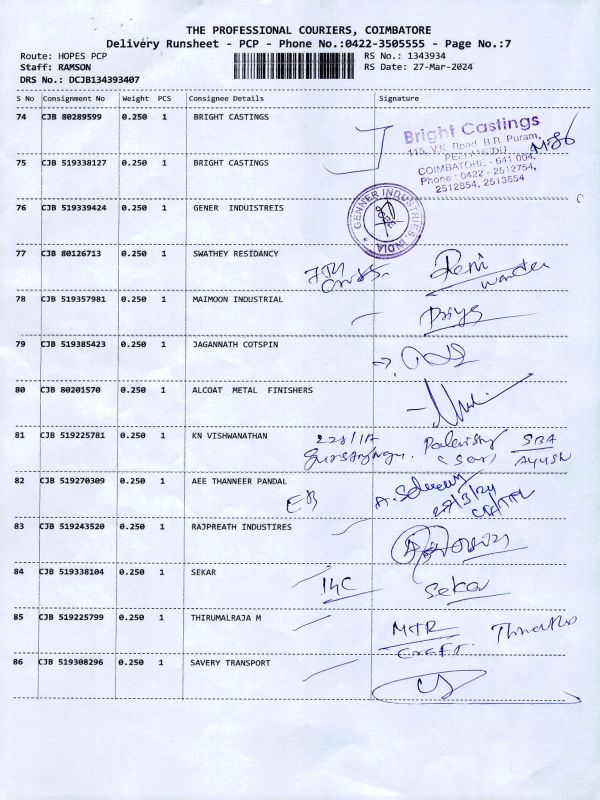 THE PROFESSIONAL COURIERS, COIMBATORE
Delivery Runsheet - PCP - Phone No.:0422-3505555 - Page No.:7
Route: HOPES PCP
RS No.: 1343934
Staff: RAMSON
RS Date: 27-Mar-2024
DRS No.: DCJB134393407
S No Consignment No Weight PCS Consignee Details Signature
74 CJB 80289599 0.250 1 BRIGHT CASTINGS
Bright Castings
115, V.K. Road, B.R. Puram,
PEELAMEDU
COIMBATORE - 641 004.
Phone: 0422 - 2512754,
2512854, 2513654
75 CJB 519338127 0.250 1 BRIGHT CASTINGS
76 CJB 519339424 0.250 1 GENER INDUISTREIS
GENNER INDUSTRIES, INDIA
77 CJB 80126713 0.250 1 SWATHEY RESIDANCY
78 CJB 519357981 0.250 1 MAIMOON INDUSTRIAL
Priya
79 CJB 519385423 0.250 1 JAGANNATH COTSPIN
80 CJB 80201570 0.250 1 ALCOAT METAL FINISHERS
81 CJB 519225781 0.250 1 KN VISHWANATHAN
SBA
AYUSH
82 CJB 519270309 0.250 1 AEE THANNEER PANDAL
EB
27/3/24
83 CJB 519243520 0.250 1 RAJPREATH INDUSTIRES
84 CJB 519338104 0.250 1 SEKAR
14C
Sekar
85 CJB 519225799 0.250 1 THIRUMALRAJA M
MTR
CRAFT.
86 CJB 519308296 0.250 1 SAVERY TRANSPORT